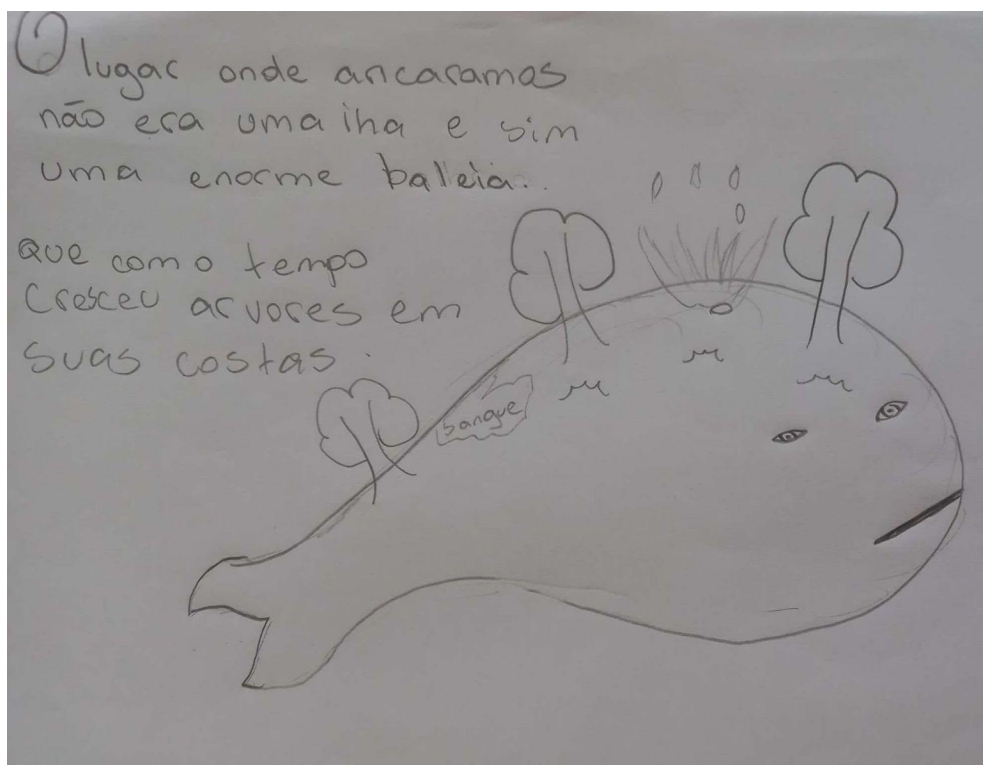 O lugar onde ancaramos
não era uma iha e sim
uma enorme baleia..
que como tempo
Cresceu arvores em
suas costas.
sangue